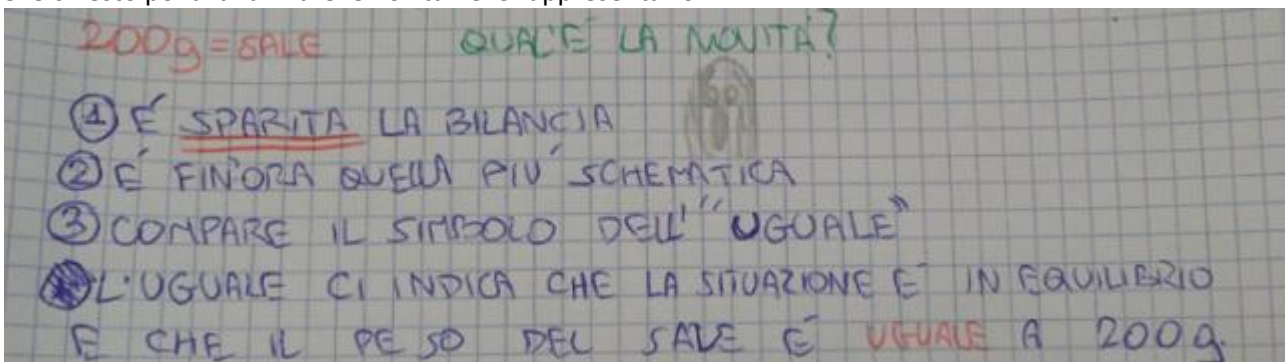 200g = SALE QUAL'É LA NOVITÁ?
① É SPARITA LA BILANCIA
② É FIN'ORA QUELLA PIÚ SCHEMATICA
③ COMPARE IL SIMBOLO DELL' "UGUALE"
L'UGUALE CI INDICA CHE LA SITUAZIONE É IN EQUILIBRIO
E CHE IL PESO DEL SALE É UGUALE A 200g.